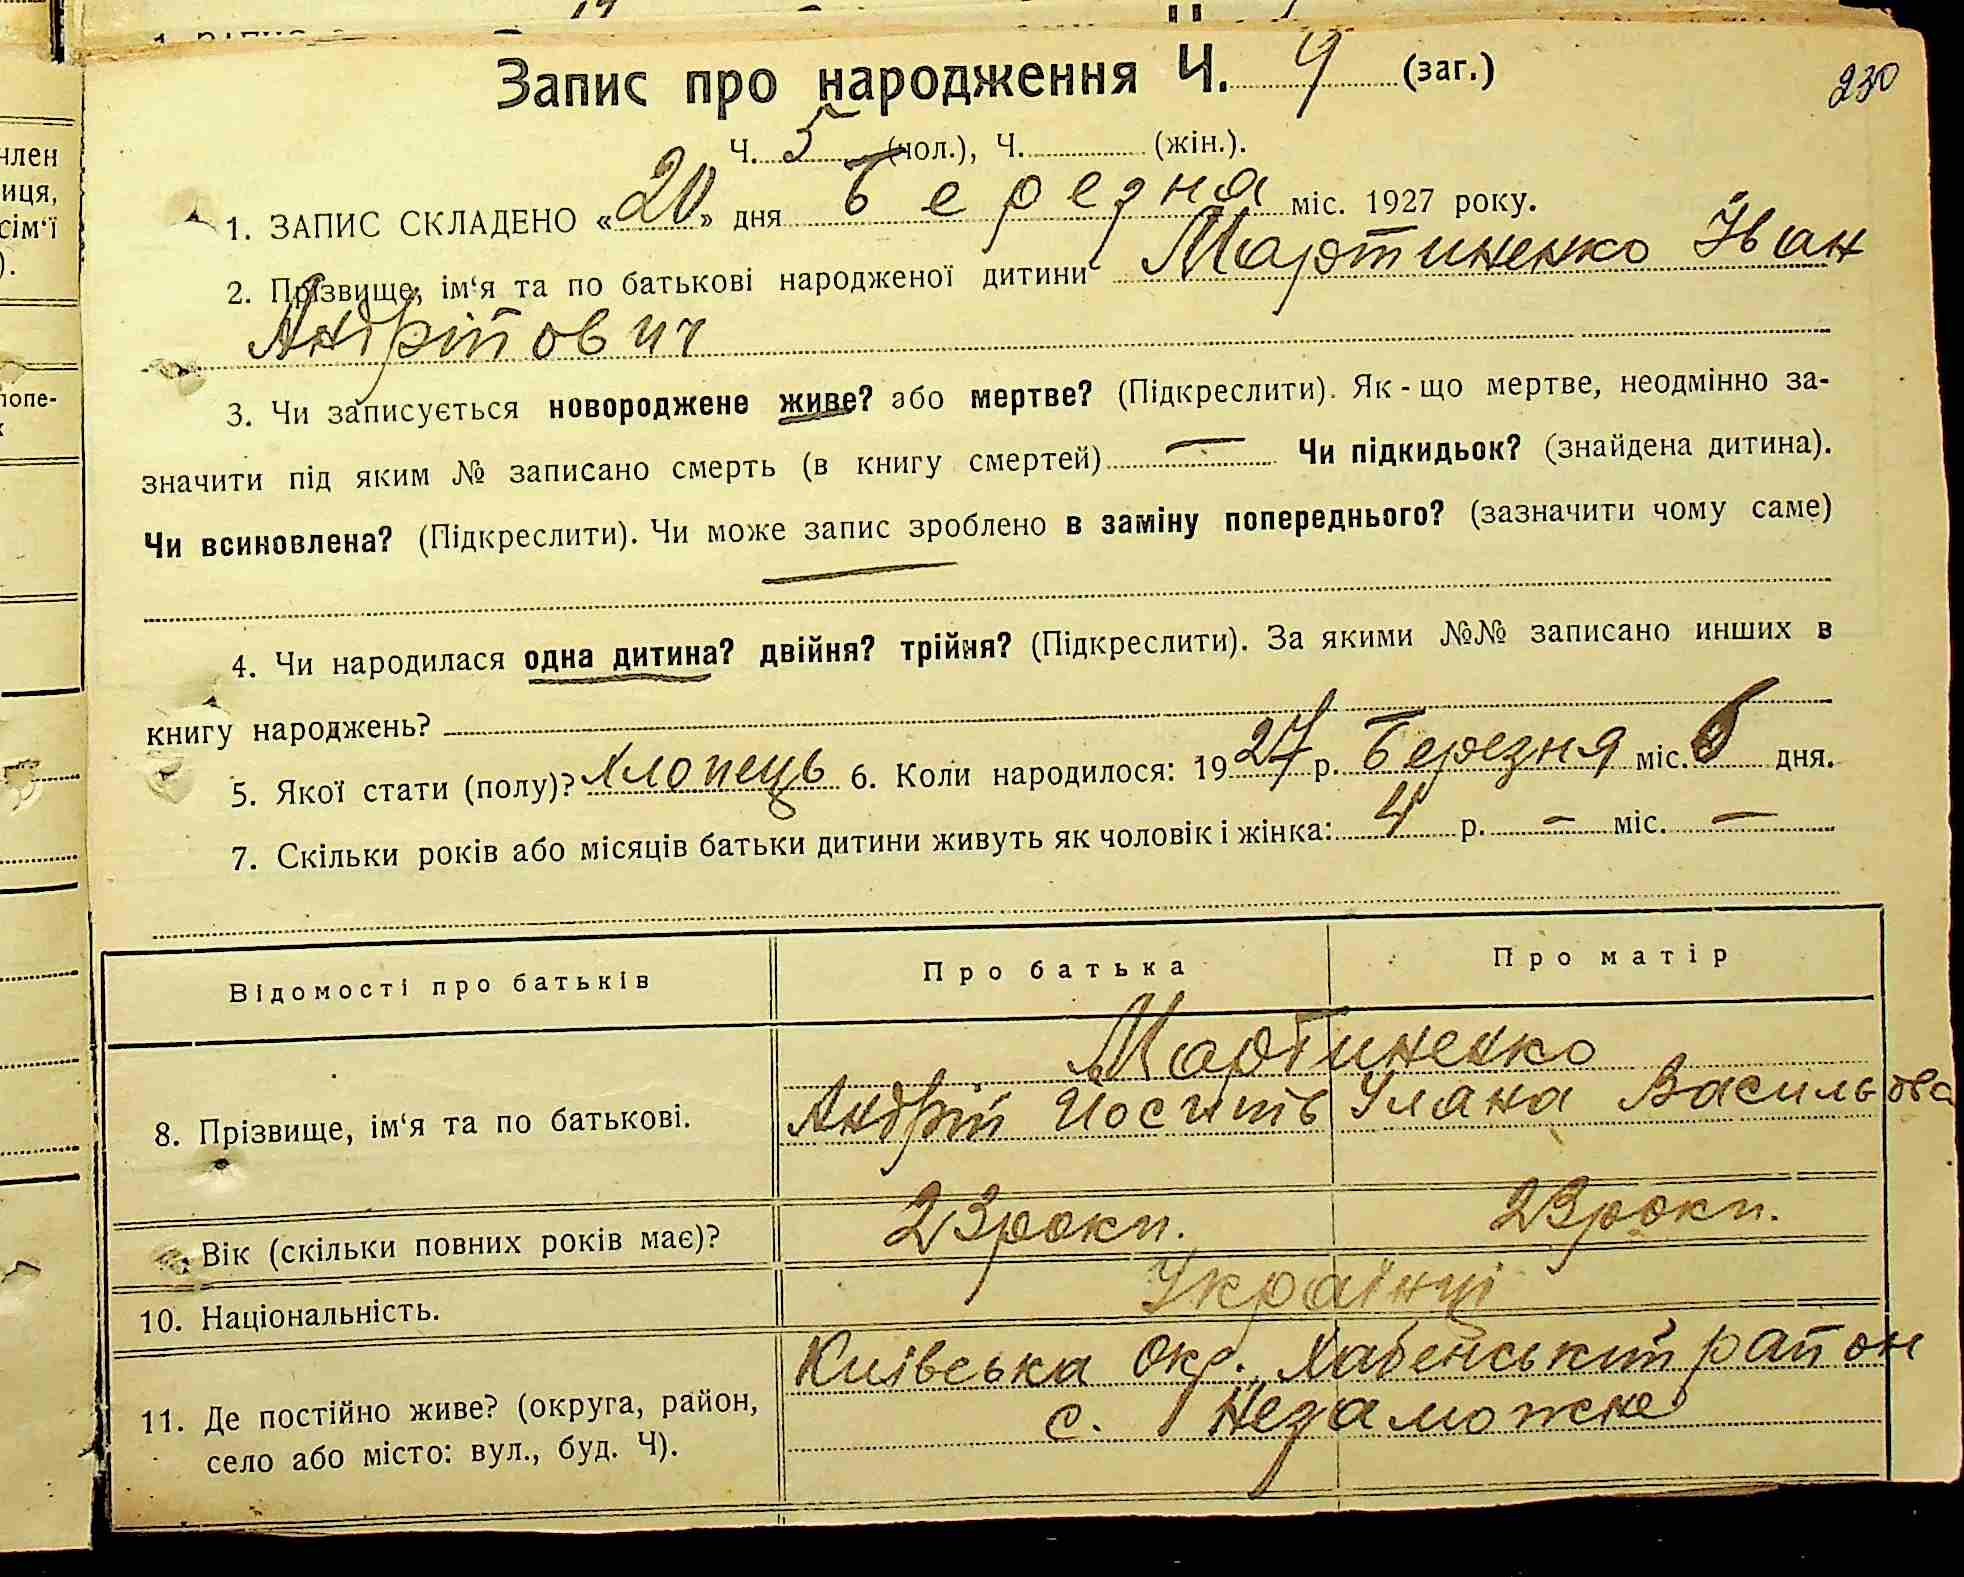 Запис про народження Ч. 9 (заг.)
230
Ч. 5 (чол.), Ч. (жін.).
1. ЗАПИС СКЛАДЕНО «20» дня Березня міс. 1927 року.
2. Прізвище, ім‘я та по батькові народженої дитини Мартиненко Іван
Андрійович
3. Чи записується новороджене живе? або мертве? (Підкреслити). Як-що мертве, неодмінно за-
значити під яким № записано смерть (в книгу смертей) — Чи підкидьок? (знайдена дитина).
Чи всиновлена? (Підкреслити). Чи може запис зроблено в заміну попереднього? (зазначити чому саме)
4. Чи народилася одна дитина? двійня? трійня? (Підкреслити). За якими №№ записано инших в
книгу народжень?
5. Якої стати (полу)? Хлопець 6. Коли народилося: 1927 р. Березня міс. 6 дня.
7. Скільки років або місяців батьки дитини живуть як чоловік і жінка: 4 р. — міс. —
Відомості про батьків Про батька Про матір
Мартиненко
8. Прізвище, ім‘я та по батькові. Андрій Йосипів Улана Васильова
Вік (скільки повних років має)? 23 роки. 23 роки.
10. Національність. Українці
Київська Окр. Хабенський район
11. Де постійно живе? (округа, район, с. Незаможне
село або місто: вул., буд. Ч).
член
иця,
сім‘ї
).
попе-